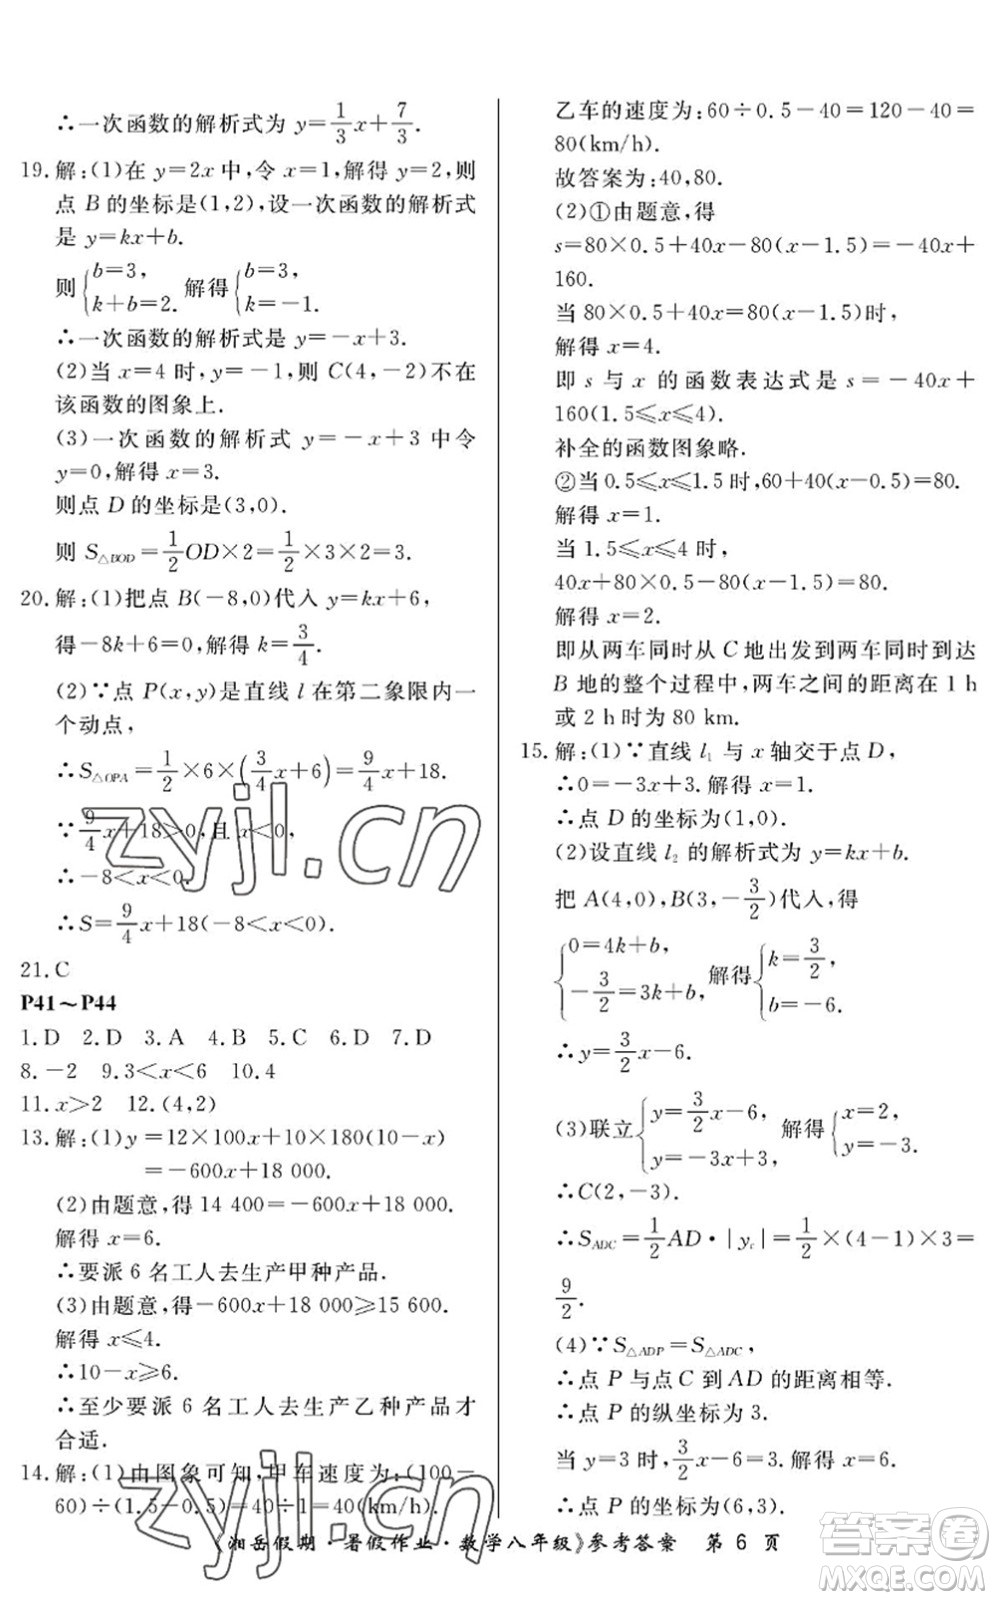 ∴一次函数的解析式为 y=1/3x+7/3.
19.解:(1)在 y=2x 中,令 x=1,解得 y=2,则
点 B 的坐标是(1,2),设一次函数的解析式
是 y=kx+b.
则{b=3, k+b=2. 解得{b=3, k=-1.
∴一次函数的解析式是 y=-x+3.
(2)当 x=4 时,y=-1,则 C(4,-2)不在
该函数的图象上.
(3)一次函数的解析式 y=-x+3 中令
y=0,解得 x=3.
则点 D 的坐标是(3,0).
则 S△BOD=1/2OD×2=1/2×3×2=3.
20.解:(1)把点 B(-8,0)代入 y=kx+6,
得-8k+6=0,解得 k=3/4.
(2)∵点 P(x,y)是直线 l 在第二象限内一
个动点,
∴S△OPA=1/2×6×(3/4x+6)=9/4x+18.
∵9/4x+18>0,且 x<0,
∴-8<x<0,
∴S=9/4x+18(-8<x<0).
21.C
P41～P44
1.D 2.D 3.A 4.B 5.C 6.D 7.D
8.-2 9.3<x<6 10.4
11.x>2 12.(4,2)
13.解:(1)y=12×100x+10×180(10-x)
=-600x+18 000.
(2)由题意,得 14 400=-600x+18 000.
解得 x=6.
∴要派 6 名工人去生产甲种产品.
(3)由题意,得-600x+18 000≥15 600.
解得 x≤4.
∴10-x≥6.
∴至少要派 6 名工人去生产乙种产品才
合适.
14.解:(1)由图象可知,甲车速度为:(100-
60)÷(1.5-0.5)=40÷1=40(km/h).
乙车的速度为:60÷0.5-40=120-40=
80(km/h).
故答案为:40,80.
(2)①由题意,得
s=80×0.5+40x-80(x-1.5)=-40x+
160.
当 80×0.5+40x=80(x-1.5)时,
解得 x=4.
即 s 与 x 的函数表达式是 s=-40x+
160(1.5≤x≤4).
补全的函数图象略.
②当 0.5≤x≤1.5 时,60+40(x-0.5)=80.
解得 x=1.
当 1.5≤x≤4 时,
40x+80×0.5-80(x-1.5)=80.
解得 x=2.
即从两车同时从 C 地出发到两车同时到达
B 地的整个过程中,两车之间的距离在 1 h
或 2 h 时为 80 km.
15.解:(1)∵直线 l₁ 与 x 轴交于点 D,
∴0=-3x+3.解得 x=1.
∴点 D 的坐标为(1,0).
(2)设直线 l₂ 的解析式为 y=kx+b.
把 A(4,0),B(3,-3/2)代入,得
{0=4k+b, -3/2=3k+b, 解得{k=3/2, b=-6.
∴y=3/2x-6.
(3)联立{y=3/2x-6, y=-3x+3, 解得{x=2, y=-3.
∴C(2,-3).
∴S△ADC=1/2AD·|yc|=1/2×(4-1)×3=
9/2.
(4)∵S△ADP=S△ADC,
∴点 P 与点 C 到 AD 的距离相等.
∴点 P 的纵坐标为 3.
当 y=3 时,3/2x-6=3.解得 x=6.
∴点 P 的坐标为(6,3).
《湘岳假期·暑假作业·数学八年级》参考答案 第 6 页
zyjl.cn
zyjl.cn
作业精灵